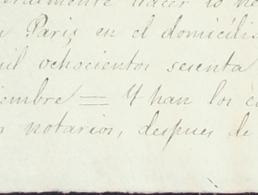 hacer lo
Paris en el domicili
mil ochocientos sesenta
iembre = Y han los c
notarios, despues de